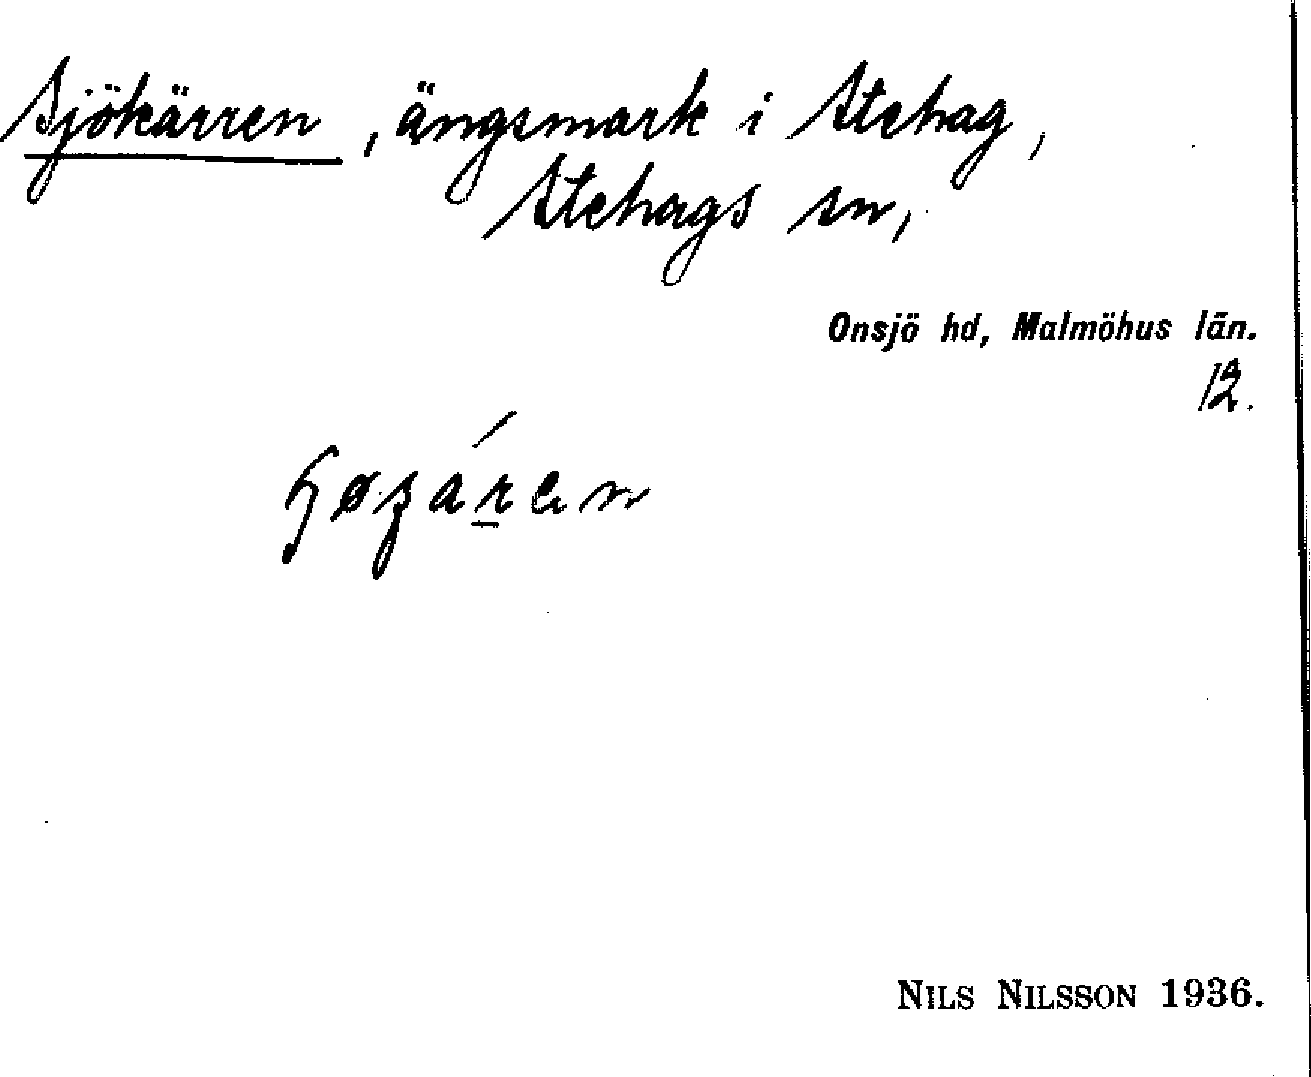 Sjökärren, ängsmark i Stehag,
Stehags sn,
Onsjö hd, Malmöhus län.
12.
NILS NILSSON 1936.